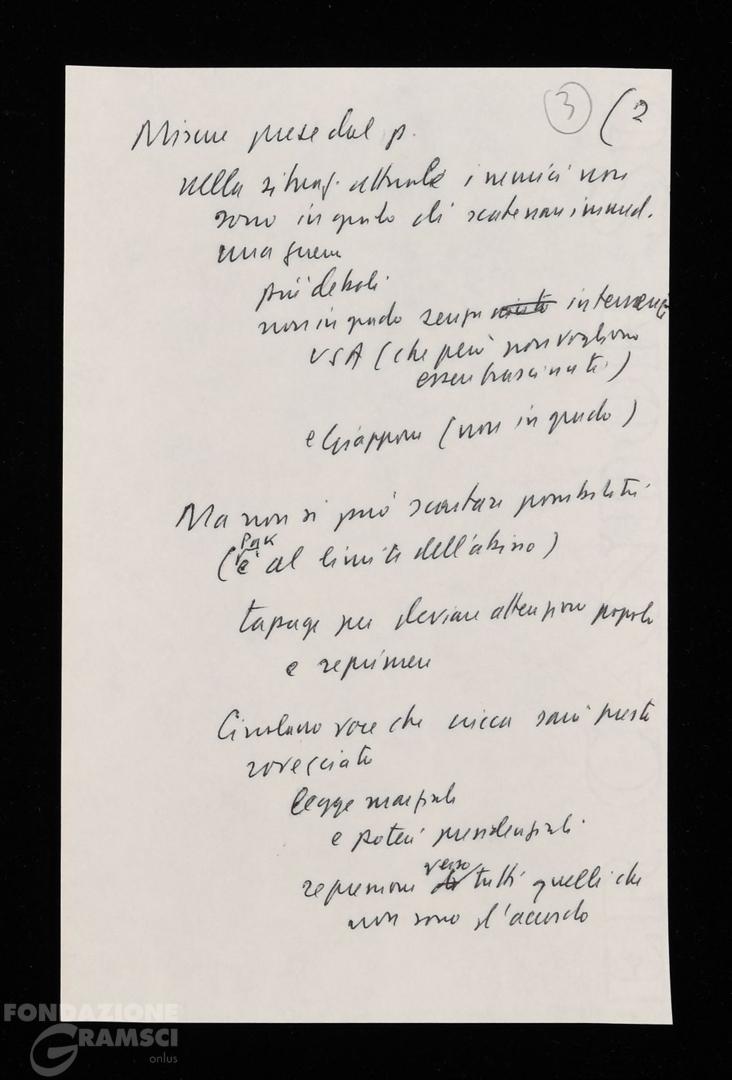 3 (2
Misure prese dal p.
nella situaz. attuale i nemici non
sono in grado di scatenare immed.
una guerra
più deboli
non in grado senza intervento
USA (che però non vogliono
essere trascinati)
e Giappone (non in grado)
Ma non si può scartare possibilità
(Pak è al limite dell'abisso)
tapage per deviare attenzione popolo
e reprimere
Circolano voce che cricca sarà presto
rovesciata
legge marziale
e poteri presidenziali
repressione verso tutti quelli che
non sono d'accordo
FONDAZIONE
GRAMSCI
onlus